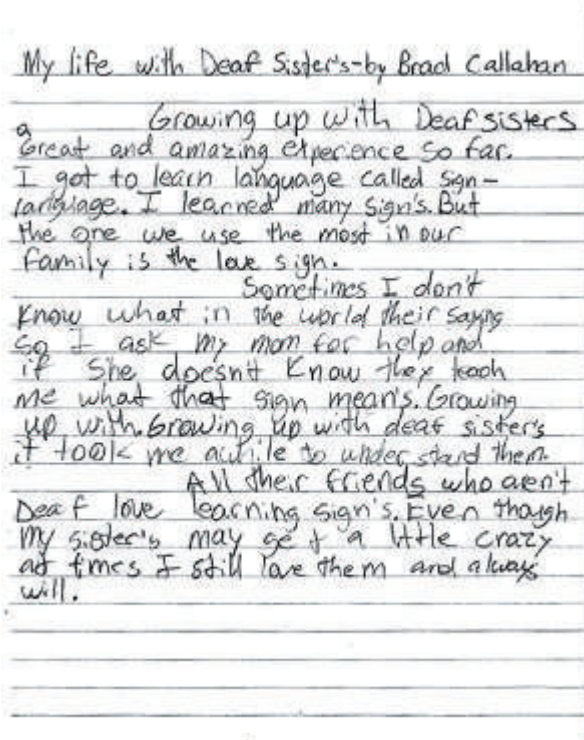 My life with Deaf Sister's-by Brad Callahan
Growing up with Deaf sisters
a
Great and amazing experience so far.
I got to learn language called sign-
language. I learned many sign's. But
the one we use the most in our
family is the love sign.
Sometimes I don't
know what in the world their saying
so I ask my mom for help and
if she doesn't know they teach
me what that sign mean's. Growing
up with. Growing up with deaf sister's
it took me awhile to understand them
All their friends who aren't
Deaf love learning sign's. Even though
my sister's may get a little crazy
at times I still love them and always
will.